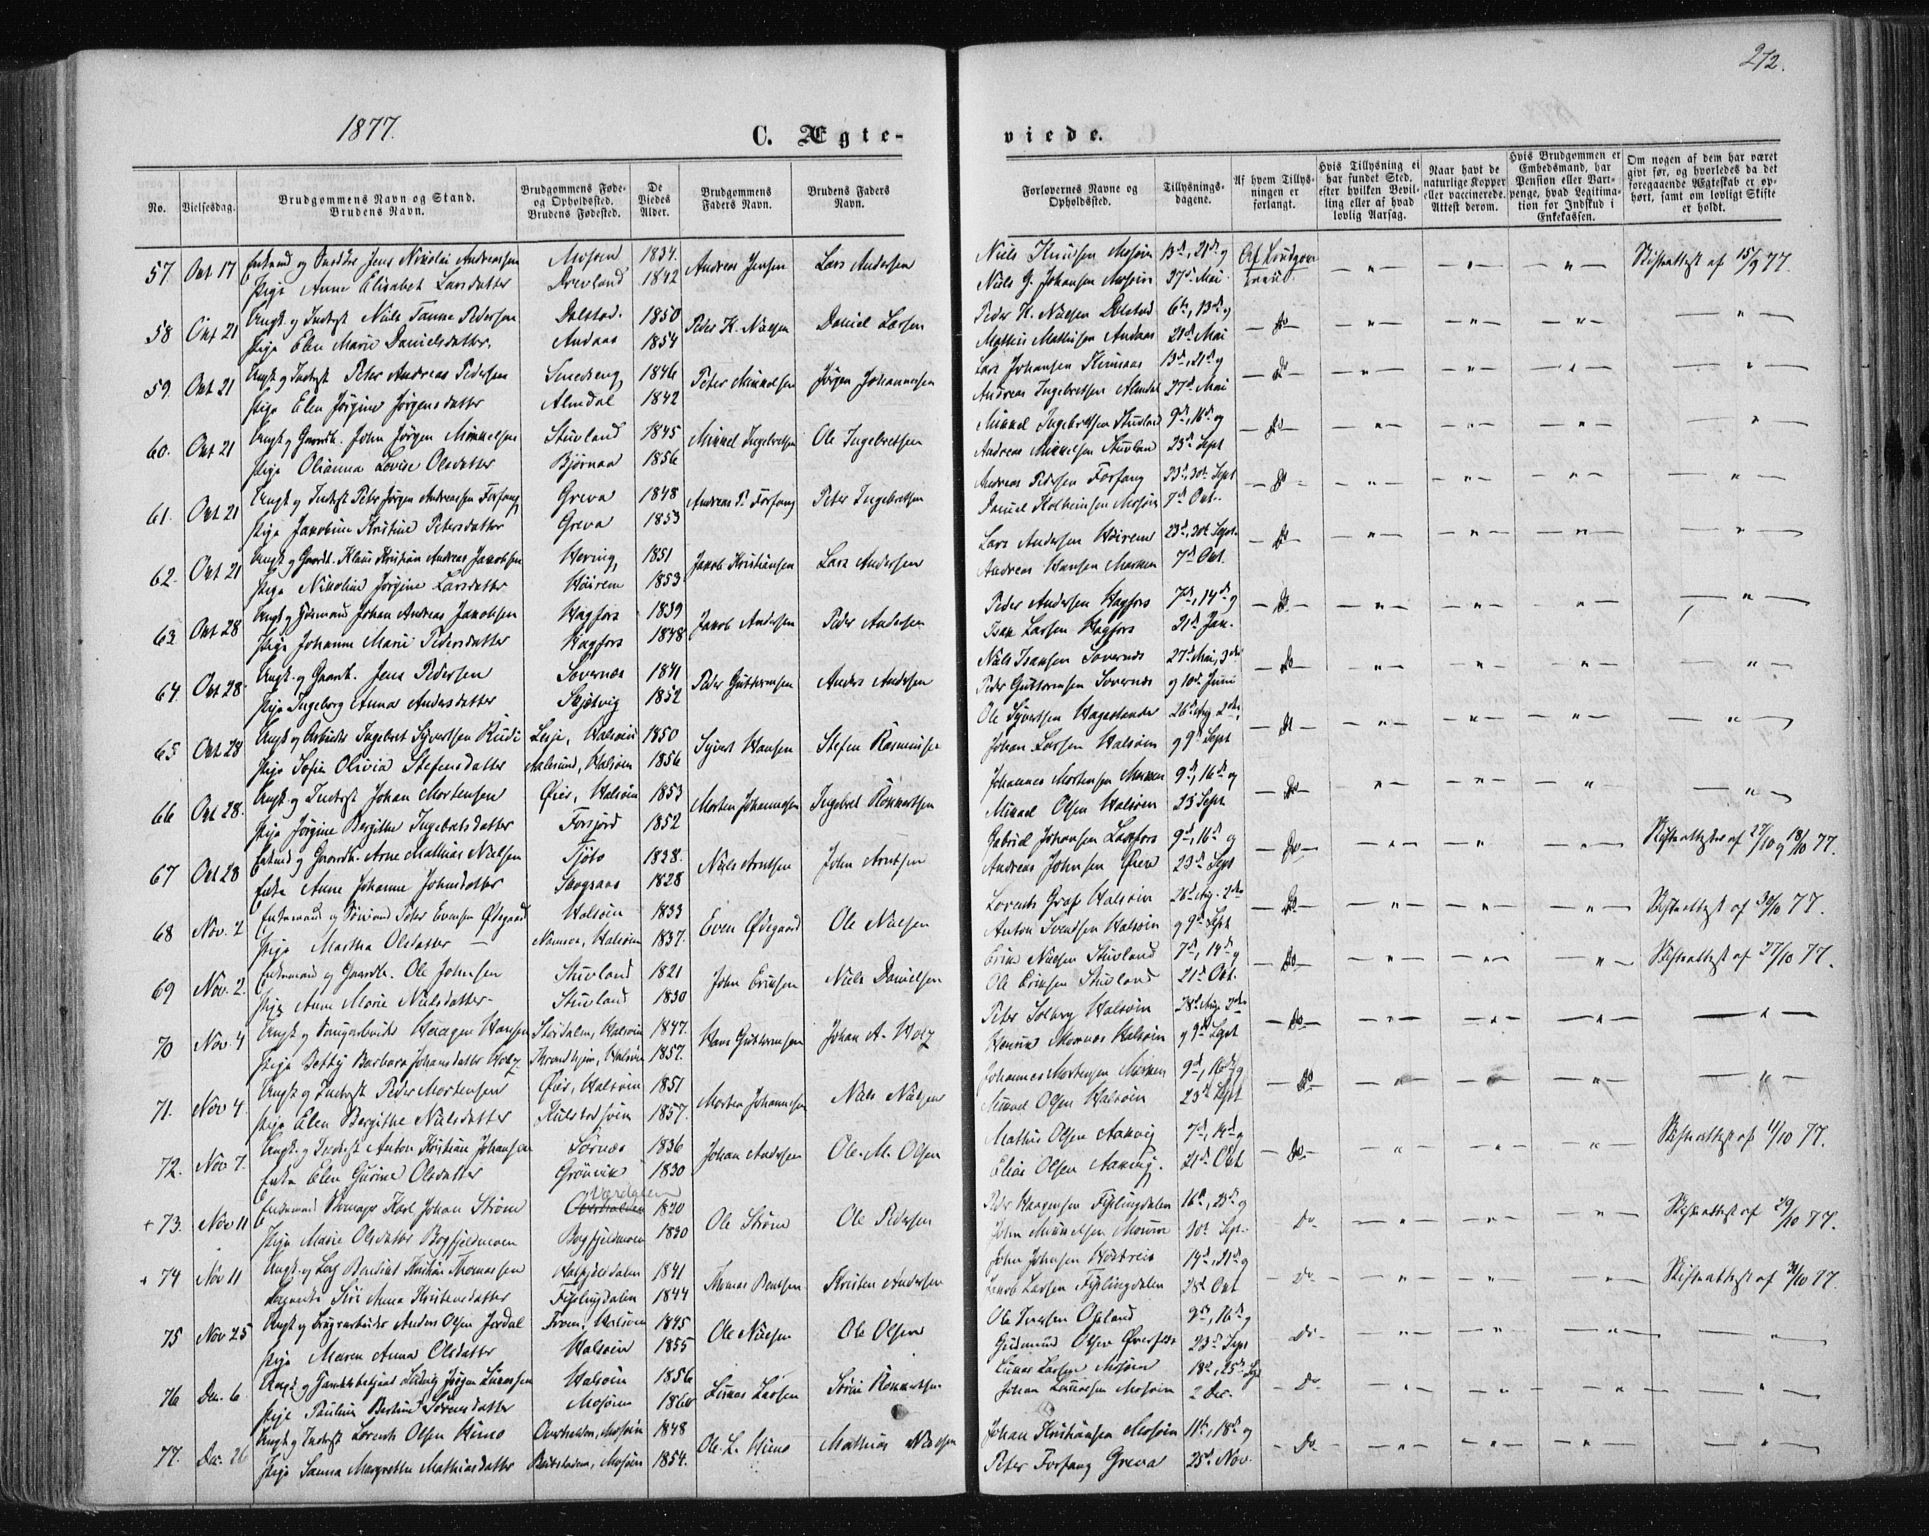 272.
1877.
C. Ægte-
viede.
No.
Vielsesdag.
Brudgommens Navn og Stand.
Brudens Navn.
Brudgommens Føde-
og Opholdssted.
Brudens Fødested.
De
Viedes
Alder.
Brudgommens
Faders Navn.
Brudens Faders
Navn.
Forlovernes Navne og
Opholdssted.
Tillysnings-
dagene.
Af hvem Tillys-
ningen er
forlangt.
Hvis Tillysning ei
har fundet Sted,
efter hvilken Bevil-
ling eller af hvad
lovlig Aarsag.
Naar havt de
naturlige Kopper
eller vaccinerede.
Attest derom.
Hvis Brudgommen er
Embedsmand, har
Pension eller Vart-
penge, hvad Legitima-
tion for Indskud i
Enkekassen.
Om nogen af dem har været
givt før, og hvorledes da det
foregaaende Ægteskab er op-
hørt, samt om lovligt Skifte
er holdt.
57 Okt 17 Enkemd og Jens Nikolai Andreassen Mosøen 1834. Andreas Jensen Lars Andersen Niels Knudsen Mosøen 13de, 21de og Skifteattest af 15/9 77.
Pige Anne Elisabet Larsdatter Drevland 1842 Niels G. Johansen Mosøen 27de Mai
58 Okt 21 Ungk. og Inderst Niels Tanne Pedersen Dolstad 1850 Peder H. Nielsen Daniel Larsen Peder H. Nielsen Dolstad 6te, 13de og Do
Pige Elen Marie Danielsdatter. Andaas 1854 Mathias Mathisen Andaas 21de Mai
59. Okt 21 Ungk. og Inderst Peter Andreas Pedersen Smedseng 1846 Peter Mikkelsen Jørgen Johannesen Lars Johansen 13de, 21de og Do
Pige Elen Jørgine Jørgensdatter Almdal 1842 Andreas Ingebretsen Almdal 27de Mai
60. Okt 21 Ungk. og Gaardb. John Jørgen Mikkelsen Stuvland 1845 Mikkel Ingebretsen Ole Ingebretsen Mikkel Ingebretsen Stuvland 9de, 16de og Do
Pige Olianna Lovise Olsdatter Bjørnaa 1856 Andreas Mikkelsen Stuvland 23de Sept
61. Okt 21 Ungk. og Inderst Peter Jørgen Andreassen Forfang Greva 1848 Andreas P. Forfang Peter Ingebretsen Andreas Pedersen Forfang 23de, 30te Sept Do
Pige Jakobine Kristine Petersdatter Greva 1853 Daniel Mosøen 7de Okt.
62. Okt 21 Ungk. og Gaardb. Klaus Kristian Andreas Jakobsen Hering 1851 Jakob Kristiansen Lars Andersen Lars Andersen Høirem 23de, 30te Sept. Do
Pige Nikoline Jørgine Larsdatter Høirem 1853 Andreas Hansen Marken 7de Okt.
63 Okt 28 Ungk. og Johan Andreas Jakobsen Hagfors 1839 Jakob Andersen Peder Andersen Peder Andersen Hagfors 7de, 14de og Do
Pige Johanne Marie Pedersdatter Hagfors 1838 Isak Larsen Hagfors 21de Jan.
64 Okt 28 Ungk. og Gaardb. Jens Pedersen Sovernes 1841 Peder Guttormsen Anders Andersen Niels Isaksen Sovernes 27de Mai, 3die Do
Pige Ingeborg Anna Andersdatter Skjøtvig 1852 Peder Guttormsen Sovernes og 10de Juni
65 Okt 28 Ungk. og Arbeider Ingebret Syvertsen Rudi Lesje, Halsøen 1850 Syvert Hansen Stefen Rasmussen Ole Syvertsen 26de Aug. 2den, Do
Pige Sofie Olivia Stefensdatter Aalesund, Halsøen 1856 Johan Larsen Halsøen og 9de Sept
66 Okt 28. Ungk. og Inderst Johan Mortensen Øier, Halsøen 1853 Morten Johannesen Ingebret Johannes Mortensen 9de, 16de og Do
Pige Jørgine Bergithe Ingebretsdatter Forsjord 1852 Mikael Olsen Halsøen 23de Sept
67 Okt 28 Enkemd. og Gaardb. Arne Mathias Nielsen Tjøto 1838. Niels Arntsen John Arntsen Gabriel Johansen Laxfors 9de, 16de og Do Skifteattester af 27/10 og 18/10 77.
Enke Anne Johanne Johnsdatter Skogsaas 1828 Andreas Johnsen Øien 23de Sept
68 Nov. 2 Enkemand og Peter Evensen Ødegaard Halsøen 1833 Even Ødegaard Ole Nielsen Lorents Graf Halsøen 26de Aug. 2den Do Skifteattest af 30/10 77.
Pige Martha Olsdatter Namsos, Halsøen 1837. Anton Svendsen Halsøen og 9de Sept
69 Nov. 2. Enkemand og Gaardb. Ole Johnsen Stuvland 1821 John Eriksen Niels Danielsen Erik Nielsen Stuvland 7de, 14de og Do Skifteattest af 27/10 77.
Pige Anne Marie Nielsdatter Stuvland 1830 Ole Eriksen Stuvland 21de Okt.
70 Nov 4 Ungk. og Haagen Hansen Stordalen, Halsøen 1847. Hans Guttormsen Johan A. Holz Peter Solberg Halsøen 26de Aug. 2den Do
Pige Betty Barbara Johansdatter Holz Throndhjem, Halsøen 1857. Henrik Halsøen og 9de Sept
71. Nov 4. Ungk. og Inderst Peder Mortensen Øier, Halsøen 1851 Morten Johannesen Niels Nielsen Johannes Mortensen 9de, 16de og Do
Pige Elen Bergithe Nielsdatter Kulstadsøen 1857. Mikael Olsen Halsøen 23de Sept
72. Nov 7. Ungk. og Inderst Anton Kristian Johansen Sørnes 1836 Johan Andersen Ole M. Olsen Mathias Olsen Aakvig 7de, 14de og Do Skifteattest af 11/10 77.
Enke Elen Gurine Olsdatter Grønvik 1830 Elias Olsen Aakvig 21de Okt
+ 73. Nov 11 Enkemand Karl Johan Strøm Værdalen 1820 Ole Strøm Ole Pedersen Peder Haagensen Fiplingdalen 16de, 23de og Do Skifteattest af 29/10 77.
Pige Marie Olsdatter Bogfjeldmoen Bogfjeldmoen 1830 John Mikkelsen 30te Sept.
+ 74 Nov 11 Ungk. og Lap Benedikt Kristian Thomassen 1841 Thomas Bentsen Kristen Andersen John Johnsen 14de, 21de og Do Skifteattest af 31/10 77.
Siri Anna Kristensdatter Fiplingdalen 1844 Jakob Larsen Fiplingdalen 28de Okt
75 Nov 25 Ungk. og Brugsarbeider Anders Olsen Jordal Halsøen 1845 Ole Nielsen Ole Olsen Ole Iversen Opland 9de, 16de og Do
Pige Maren Anna Olsdatter Halsøen 1855 Gudmund Olsen 23de Sept
76 Dec. 6. Ungk. og Handelsbetjent Ludvig Jørgen Linussen Halsøen 1856 Linus Larsen Linus Larsen Mosøen 18de, 25de Do
Pige Pauline Bertine Sørensdatter Mosøen 1860 Johan Mosøen 2 Dec.
77. Dec. 26 Ungk. og Inderst Lorents Olsen Himo Overhalden, Mosøen 1848 Ole L. Himo Mathias Nielsen Johan Kristiansen Mosøen 11te, 18de og Do
Pige Sanna Margrethe Mathiasdatter Mosøen 1854. Peter Forfang Greva 25de Nov.